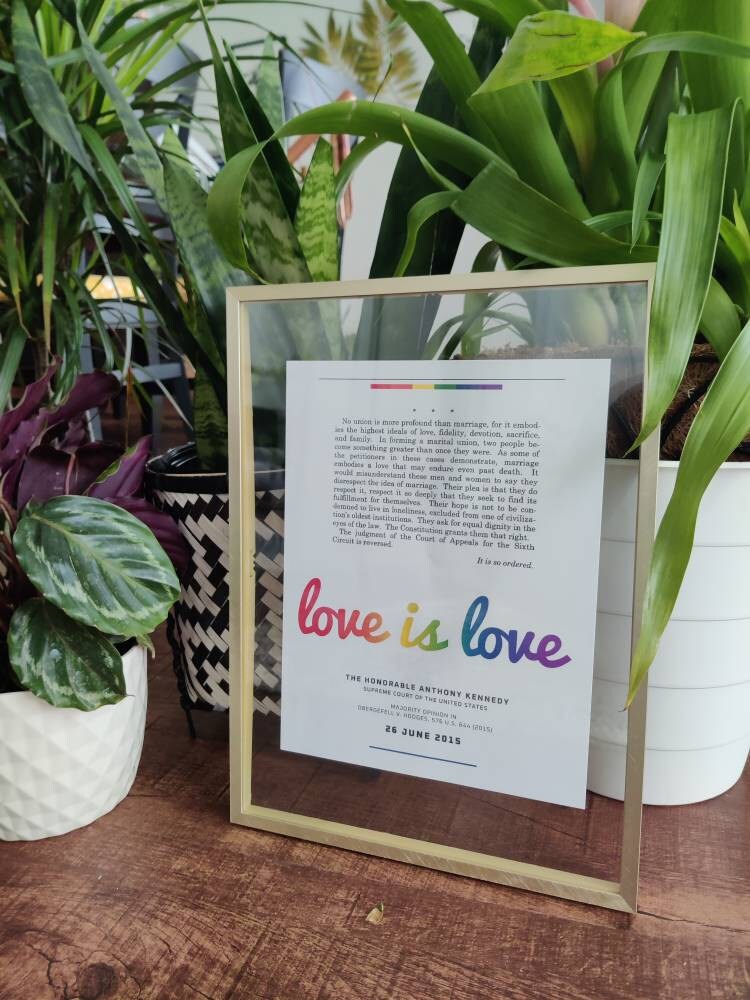 * * *
No union is more profound than marriage, for it embod-
ies the highest ideals of love, fidelity, devotion, sacrifice,
and family. In forming a marital union, two people be-
come something greater than once they were. As some of
the petitioners in these cases demonstrate, marriage
embodies a love that may endure even past death. It
would misunderstand these men and women to say they
disrespect the idea of marriage. Their plea is that they do
respect it, respect it so deeply that they seek to find its
fulfillment for themselves. Their hope is not to be con-
demned to live in loneliness, excluded from one of civiliza-
tion's oldest institutions. They ask for equal dignity in the
eyes of the law. The Constitution grants them that right.
The judgment of the Court of Appeals for the Sixth
Circuit is reversed.
It is so ordered.
love is love
THE HONORABLE ANTHONY KENNEDY
SUPREME COURT OF THE UNITED STATES
MAJORITY OPINION IN
OBERGEFELL V. HODGES, 576 U.S. 644 (2015)
26 JUNE 2015